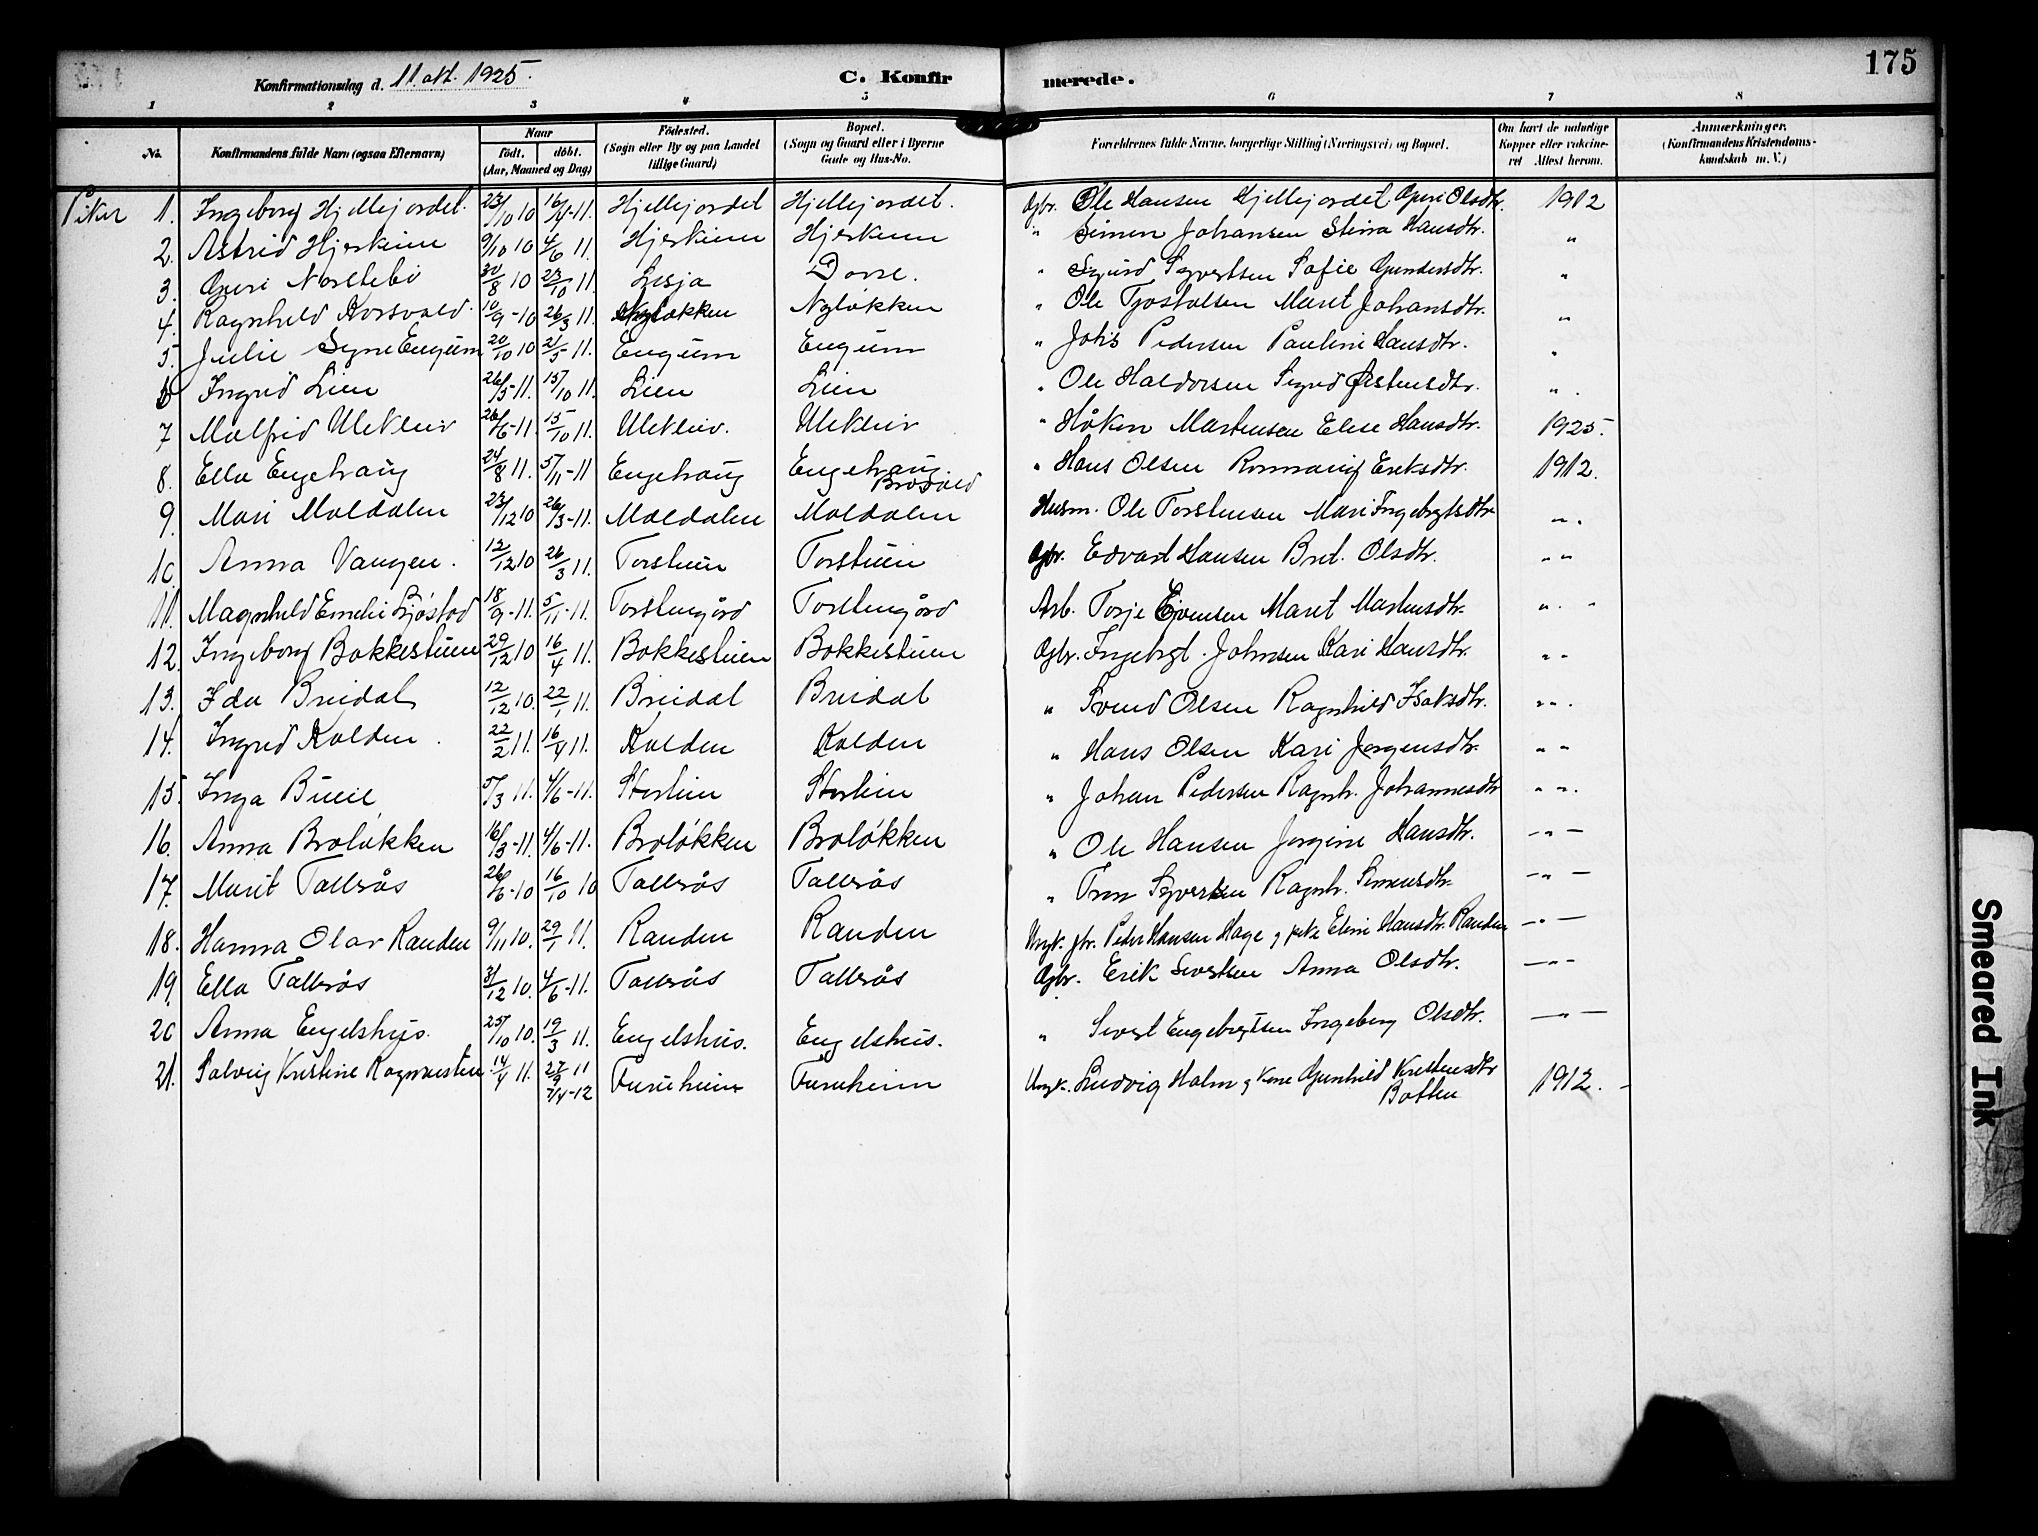 175
Konfirmationsdag d. 11 okt. 1925. C. Konfir merede.
1 2 3 4 5 6 7 8
No. Konfirmandens fulde Navn (ogsaa Efternavn) Naar født, døbt. (Aar, Maaned og Dag) Fødested. (Sogn eller By og paa Landet tillige Gaard) Bopæl. (Sogn og Gaard eller i Byerne Gade og Hus-No. Forældrenes fulde Navne, borgerlige Stilling (Næringsvei) og Bopæl. Om havt de naturlige Kopper eller vaccineret Attest herom. Anmærkninger. (Konfirmandens Kristendomskundskab m. V.)
Piker 1. Ingeborg Hjellejordet. 23/10 10 16/4-11. Hjellejordet Hjellejordet. Gbr. Ole Hansen Hjellejordet Guri Olsdtr. 1912
2. Astrid Hjerkinn 9/10 10 4/6 11. Hjerkinn Hjerkinn " Simen Johansen Stina Hansdtr. "
3. Guri Norstebø 30/8 10 23/10 11 Lesja Dovre. " Sigurd Syvertsen Sofie Gundersdtr. "
4. Ragnhild Korsvold. 10/9-10 26/3 11. Nyløkken Nyløkken " Ole Tjostolsen Marit Johansdtr. "
5. Julie Signe Engum 20/10 10 21/5 11. Engum Engum " Johs Pedersen Pauline Hansdtr. "
6 Ingrid Lien 26/5-11. 15/10 11. Lien Lien " Ole Haldorsen Sigrid Østensdtr. "
7 Malfrid Ulekleiv 26/6-11. 15/10 11. Ulekleiv. Ulekleiv " Håken Martensen Elise Hansdtr. 1925.
8. Ella Engehaug 24/8 11. 5/11-11 Engehaug Engehaug. Brovold " Hans Olsen Ronnaug Eriksdtr. 1912.
9. Mari Moldalen 23/12 10 26/3-11. Moldalen Moldalen Husm. Ole Torstensen Mari Ingebrgtsdtr. "
10. Anna Vangen. 12/12 10 26/3 11. Torstuen Torstuen Gbr. Edvart Hansen Brit. Olsdtr. " "
11. Magnhild Emelie Sjøstad 18/9-11. 5/11-11. Torstengård Torstengård Arb. Torje Eivensen Marit Martensdtr. " "
12. Ingeborg Bakkestuen 29/12 10 16/4 11. Bakkestuen Bakkestuen Gbr. Ingebrgt. Johnsen Kari Hansdtr. " "
13. Ida Breidal 12/12 10. 22/1 11. Breidal Breidal " Svend Olsen Ragnhild Isaksdtr. " "
14. Ingrid Kolden. 22/2 11. 16/4 11. Kolden Kolden " Hans Olsen Kari Jørgensdtr. " "
15. Inga Bueie 5/3 11. 4/6-11. Storlien Storlien " Johan Pedersen Ragnh. Johannesdtr " "
16. Anna Broløkken 16/3-11. 4/6-11. Broløkken Broløkken " Ole Hansen Jørgine Hansdtr. - " -
17. Marit Tallerås 26/6-10 16/10 10 Tallerås Tallerås " Tron Syversen Ragnh. Simensdtr. - " -
18. Hanna Olav Randen 9/11 10. 29/1 11. Randen Randen Ungk. Peder Hansen Hage g pike Eline Hansdtr. Randen - " -
19. Ella Tallerås 31/12 10. 4/6-11. Tallerås Tallerås Gbr. Erik Sivertsen Anna Olsdtr. - " -
20 Anna Engelshus. 25/10 10. 19/3 11. Engelshus. Engelshus. " Sivert Engebregtsen Ingeborg Olsdtr. - " -
21. Solveig Kristine 14/4 11. 27/9 11 7/4-12 Furuheim Furuheim Ungk. Ludvig Holm g Gunhild Kristensdtr Botten 1912. -
Smeared Ink